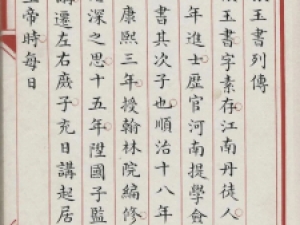 張玉書列傳
張玉書字素存江南丹徒人
年進士歷官河南提學僉
書其次子也順治十八年
康熙三年授翰林院編修
深之思十五年陞國子監
講遷左右庶子充日講起居
帝時每日